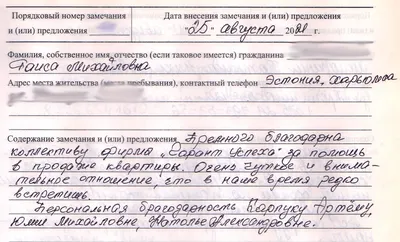 Порядковый номер замечания
и (или) предложения
Дата внесения замечания и (или) предложения
"25" августа 2021 г.
Фамилия, собственное имя, отчество (если таковое имеется) гражданина
Таиса Михайловна
Адрес места жительства (места пребывания), контактный телефон Эстония, Харьюмаа
Содержание замечания и (или) предложения Премного благодарна
коллективу фирмы "Гарант Успеха" за помощь
в продаже квартиры. Очень чуткое и внима-
тельное отношение, что в наше время редко
встретишь.
Персональная благодарность Карпуку Артёму,
Юлии Михайловне, Наталье Александровне.